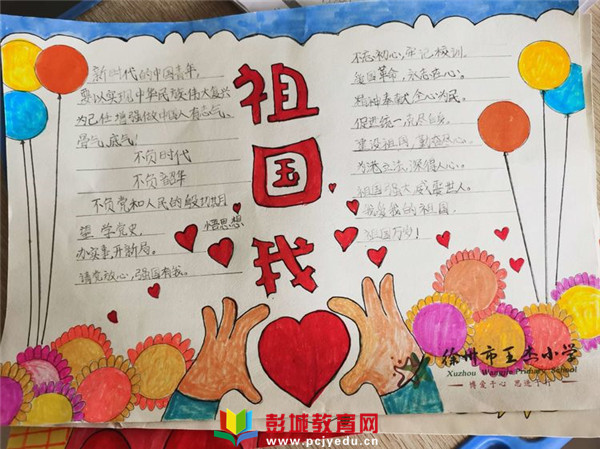 新时代的中国青年,
要以实现中华民族伟大复兴
为己任增强做中国人有志气、
骨气、底气!
不负时代
不负韶华
不负党和人民的殷切期
望 学党史, 悟思想
办实事,开新局。
请党放心,强国有我。
祖
国
我
不忘初心,牢记校训。
革命,永志在心。
精神奉献 全心为民。
促进统一
建设祖国,勤奋尽心。
为港立法,深得人心。
祖国强大 威震世人。
我爱我的祖国,
祖国万岁!
徐州市王杰小学
Xuzhou Wangjie Primary School
博爱于心 思进于行
彭城教育网
www.pcjyedu.cn